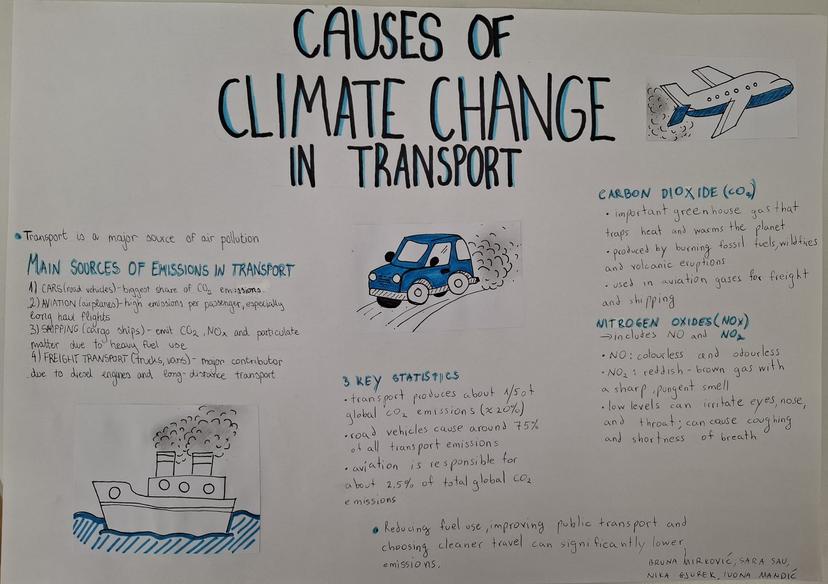 CAUSES OF
CLIMATE CHANGE
IN TRANSPORT
• Transport is a major source of air pollution
MAIN SOURCES OF EMISSIONS IN TRANSPORT
1) CARS (road vehicles) - biggest share of CO₂ emissions.
2) AVIATION (airplanes) - high emissions per passenger, especially
long haul flights
3) SHIPPING (cargo ships) - emit CO₂, NOx and particulate
matter due to heavy fuel use
4) FREIGHT TRANSPORT (trucks, vans) - major contributor
due to diesel engines and long-distance transport
3 KEY STATISTICS
• transport produces about 1/5 of
global CO₂ emissions (≈20%)
• road vehicles cause around 75%
of all transport emissions
• aviation is responsible for
about 2.5% of total global CO₂
emissions
CARBON DIOXIDE (CO₂)
• important greenhouse gas that
traps heat and warms the planet
• produced by burning fossil fuels, wildfires
and volcanic eruptions
• used in aviation gases for freight
and shipping
NITROGEN OXIDES (NOx)
→ includes NO and NO₂
• NO: colourless and odourless
• NO₂: reddish-brown gas with
a sharp, pungent smell
• low levels can irritate eyes, nose,
and throat; can cause coughing
and shortness of breath
• Reducing fuel use, improving public transport and
choosing cleaner travel can significantly lower
emissions.
BRUNA MIRKOVIĆ, SARA SAU,
NIKA GJUREK, IVONA MANDIĆ